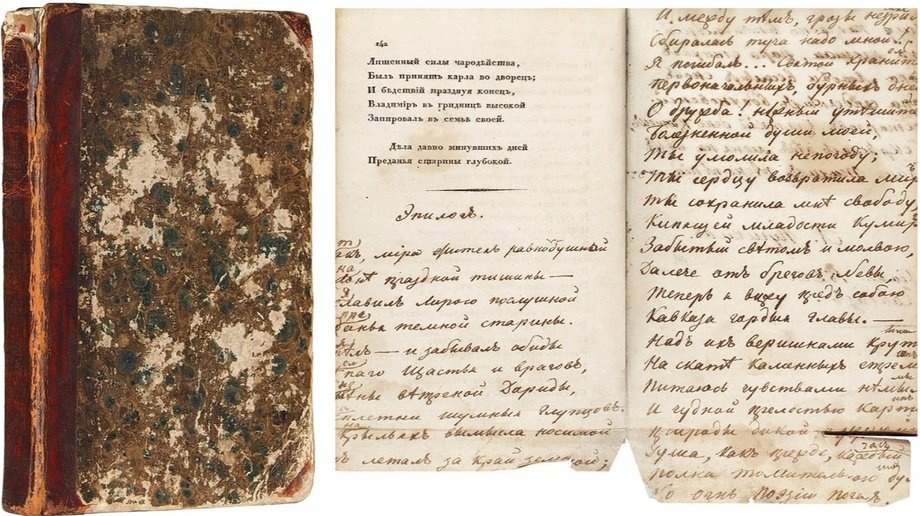 142
Лишенный силы чародѣйства,
Былъ принятъ карла во дворецъ;
И бѣдствій празднуя конецъ,
Владиміръ въ гридницѣ высокой
Запировалъ въ семьѣ своей.
Дѣла давно минувшихъ дней
Преданья старины глубокой.
Эпилогъ.
Такъ, міра житель равнодушный
На лонѣ праздной тишины —
славилъ лирою послушной
Преданья темной старины.
пѣлъ — и забывалъ обиды
слѣпаго щастья и враговъ,
ѣны вѣтреной Дориды,
плетни шумныя глупцовъ.
На крыльяхъ вымысла носимой
леталъ за край земной;
И между тѣмъ, грозы незрим
Сбиралась туча надо мной!..
Я погибалъ... Святой хранит
Первоначальныхъ, бурныхъ дне
О дружба! нѣжный утѣшит
болѣзненной души моей,
Ты умолила непогоду;
Ты сердцу возвратила мир
Ты сохранила мнѣ свободу,
Кипящей младости кумир
Забытый свѣтомъ и молвою,
Далече отъ бреговъ Невы
Теперь я вижу предъ собою
Кавказа гордыя главы. —
Надъ ихъ вершинами крут
На скатѣ каменныхъ стрем
Питаюсь чувствами нѣмы
И чудной прелестью карт
Природы дикой
Душа, какъ прежде, каждый час
полна томительною ду
Но огнь поэзіи погас.